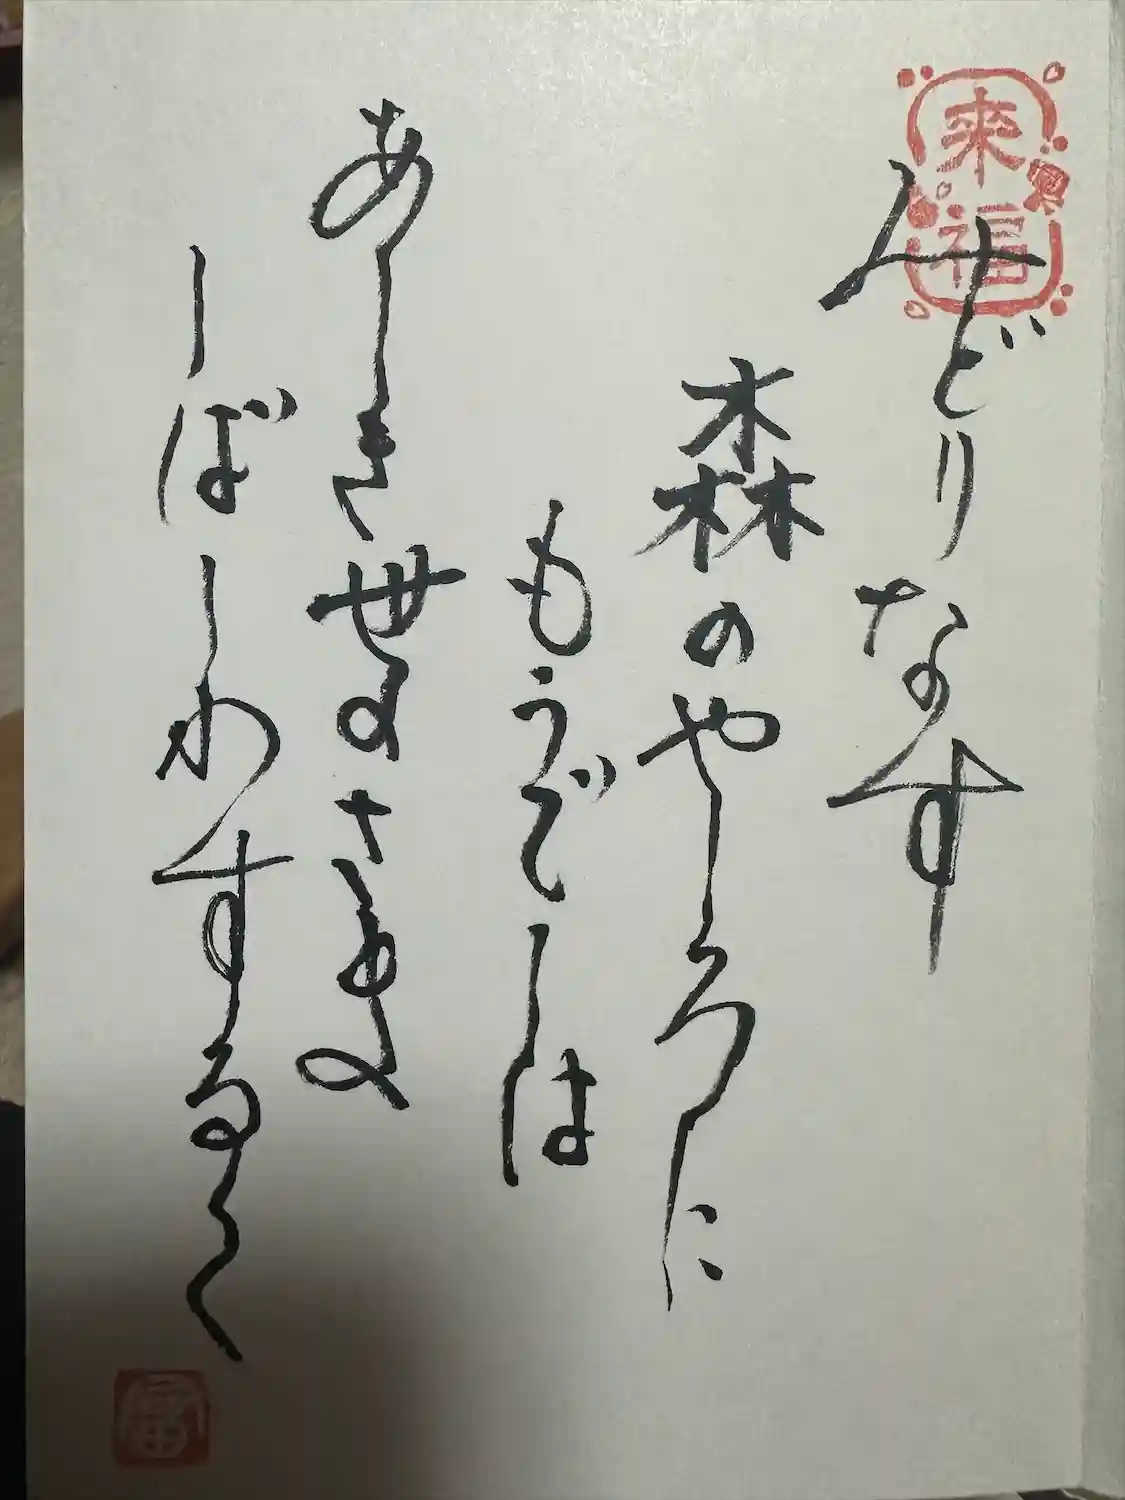 來福
みどりなす
森のやしろに
もうでしは
あしき世のさま
しばしわするゝ